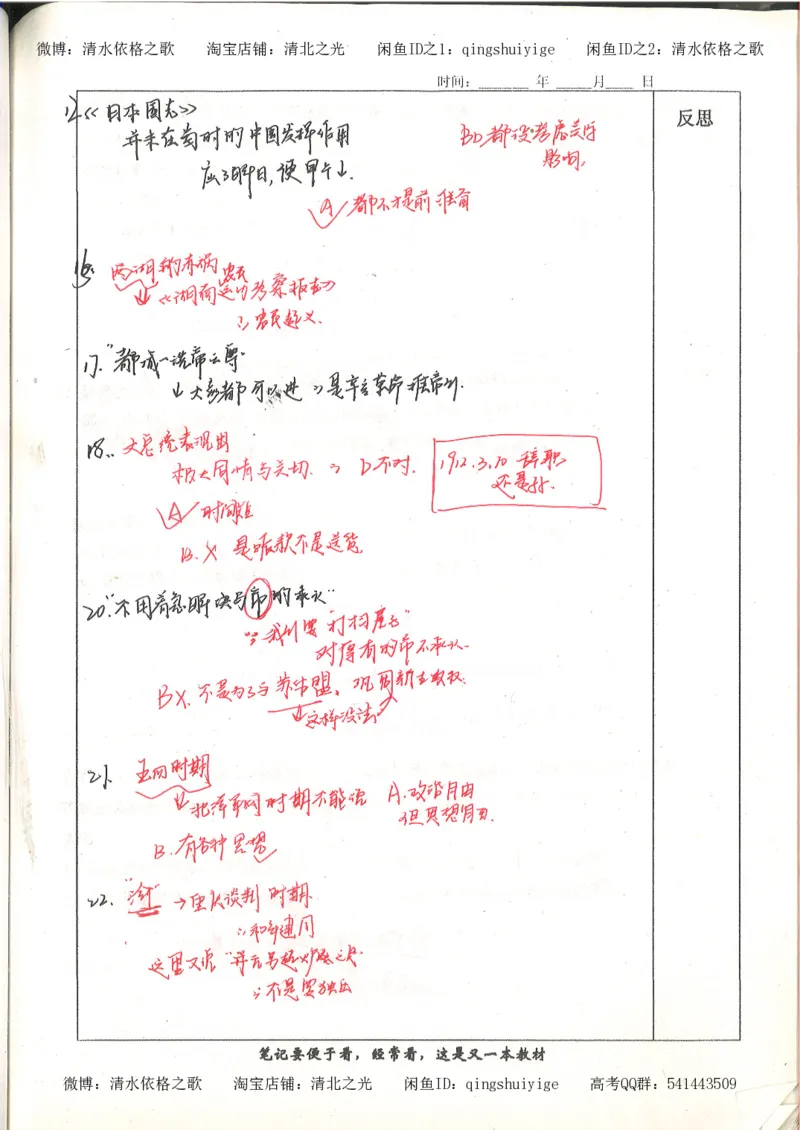 微博：清水依格之歌 淘宝店铺：清北之光 闲鱼ID之1：qingshuiyige 闲鱼ID之2：清水依格之歌
时间：______ 年 _____月____ 日
反思
12.《日本国志》
并未在当时的中国发挥作用
应了解日,使甲午
BD都没考虑实际
影响,
A 都不才是前准备
16. 两湖的赤祸
农民
《湖南运动考察报告》
∴农民起义.
17."都城一洗帝云尊"
↓大家都可以进 ∴是辛亥革命推帝制.
18. 大总统表现出
极大同情与关切. ∴ D不对.
1912.3.10 辞职
还是孙.
A 时间
B.X 是赈款不是送货
20."不用着急解决与帝的承认"
"∴我们要"打扫屋子"
对原有的帝不承认.
BX.不是为了与苏结盟、巩固新生政权.
↓这样没法
21. 五四时期
↓北洋军阀时期不能说 A.政治自由
但思想自由.
B.有各种思想
22. "渝" →重庆谈判时期
∴和平建国
这里又说"并无另起炉灶之意"
∴不是要独立
笔记要便于看，经常看，这是又一本教材
微博：清水依格之歌 淘宝店铺：清北之光 闲鱼ID：qingshuiyige 高考QQ群：541443509